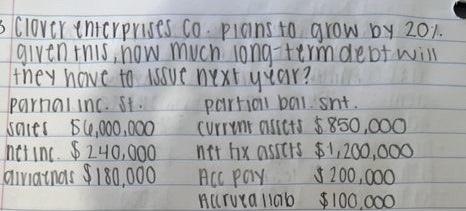 3 Clover enterprises Co. plans to grow by 20%.
given this, how much long-term debt will
they have to issue next year?
partial inc. St. partial bal. Snt.
Sales $6,000,000 current assets $850,000
net inc. $240,000 net fix assets $1,200,000
dividends $180,000 Acc pay $200,000
Accrued liab $100,000